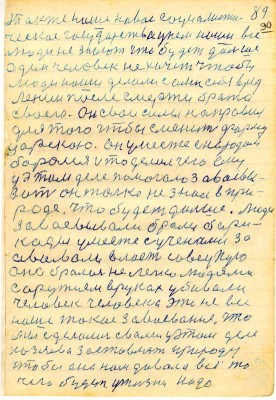 89
90
Также наше новое социалисти-
ческое государства и тем ним все
люди не знают что будет дальше
один человек не хочет чтобы
люди наши делали сами себе вред
Ленин после смерти брата
своего. Он свои силы направил
для того чтобы сменить форму
царскою. Он уместе с народом
боролся и что делал чего ему
у этом деле помогало завоевы-
вать он только не знал в при-
роде. Что будет дальше. Люди
завоевывали брали бари-
кады уместе с учеными за-
воевывали власть советскую
она бралася не легко людями
с оружием в руках убивали
человек человека Эти не все
наши такое завоевания, это
мы сделали свали у этом деле
хозяева заставлять природу
чтобы она нам давала всё то
чего будет у жизни надо